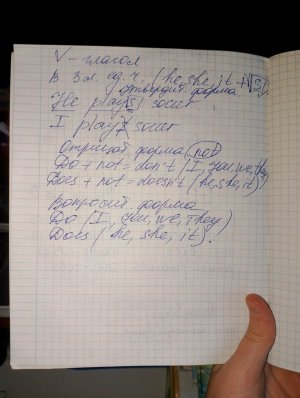 V - глагол
В 3 л. ед. ч. (he, she, it + (s)
утвердит. форма
He play(s) socer
I play socer
Отрицат форма (not)
Do + not = don't (I, you, we, they)
Does + not = doesn't (he, she, it)
Вопросит форма
Do (I, you, we, They)
Does (he, she, it).